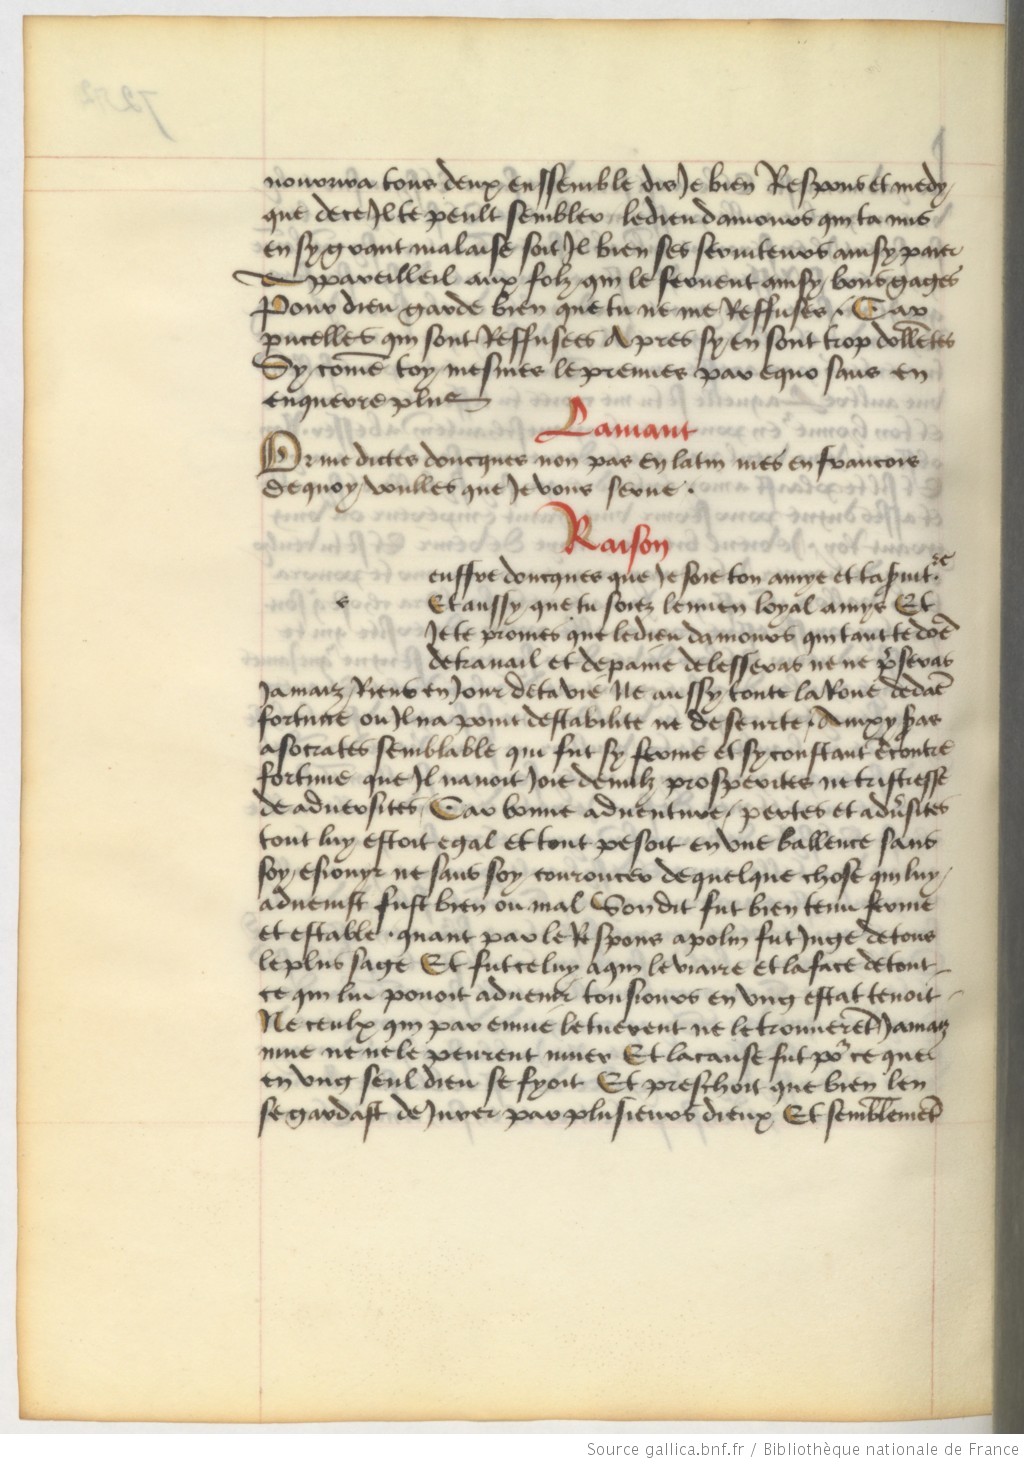 nourrira tous deux enssemble dis Je bien Respons et me dy
que de ce Il te peult sembler ledieu damours qui ta mis
en sy grant malaise soit Il bien ses seruiteurs ainsy paier
appareilleil aux folz qui le seruent ainsy bons gages
Pour dieu garde bien que tu ne me Reffuses . Car
pucelles qui sont Reffusees Apres sy en sont trop dolētes
Sy comē toy mesmes le preuues par equo sans en
enquerre plus
Lamant
Or me dictes doncques non pas en latin mes en francois
de quoy voulles que Je vous serue .
Raison
e
euffre doncques que Je soie ton amye et ta
Et aussy que tu soiez le mien loyal amys Et
Je te promes que ledieu damours qui tant te dōe
de trauail et de paine delesseras ne ne p̄seras
Jamaiz Riens en Jour de ta vie Ne aussy toute la Roue dedāe
fortune ou Il na point destabilite ne de seurte . Ainxy
a socrates semblable qui fut sy ferme et sy constant ēcontre
fortune que Il nauoit Joie de nulz prosperites ne tristresse
de aduersites Car bonne aduenture pertes et adūsites
tout luy estoit egal et tout pesoit en vne ballence sans
soy esiouyr ne sans soy couroucer de quelque chose qui luy
aduenist fust bien ou mal Son dit fut bien tenu ferme
et estable . quant par le Respons apolin fut Juge de tous
le plus sage Et fut celuy a qui le viaire et la face de tout
ce qui lui pouoit aduenir tousiours en vng estat tenoit
Ne ceulx qui par enuie le tuerent ne le trouuerēt Jamaiz
mue ne ne le peurent muer Et la cause fut po' ce que
en vng seul dieu se fyoit Et preschoit que bien len
se gardast de Jurer par plusieurs dieux Et semblemēt
Source gallica.bnf.fr / Bibliothèque nationale de France